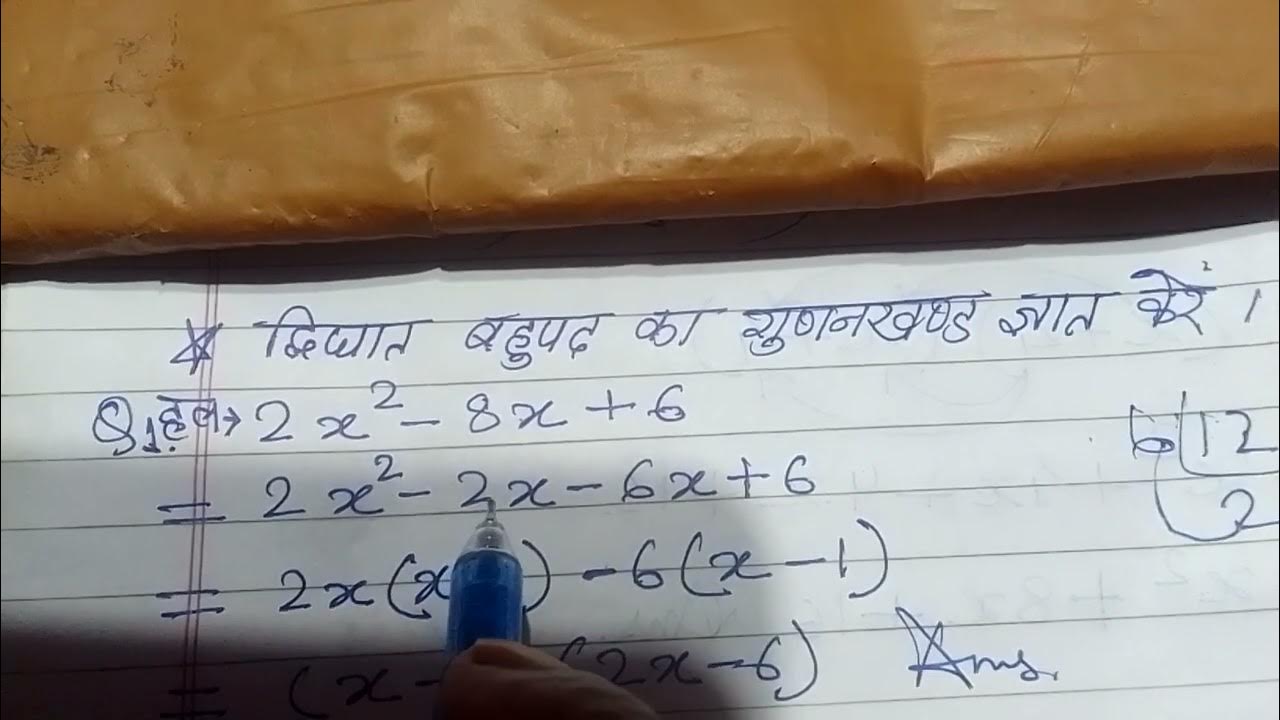 * द्विघात बहुपद का गुणनखण्ड ज्ञात करें ।
Q₁ हल→ 2x² - 8x + 6
= 2x² - 2x - 6x + 6
= 2x(x ) - 6(x - 1)
= (x - (2x - 6) Ans.
6 12
2